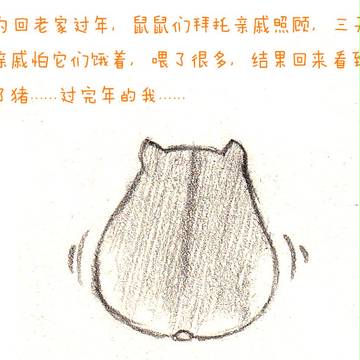 回老家过年，鼠鼠们拜托亲戚照顾，三
亲戚怕它们饿着，喂了很多，结果回来看到
了猪……过完年的我……